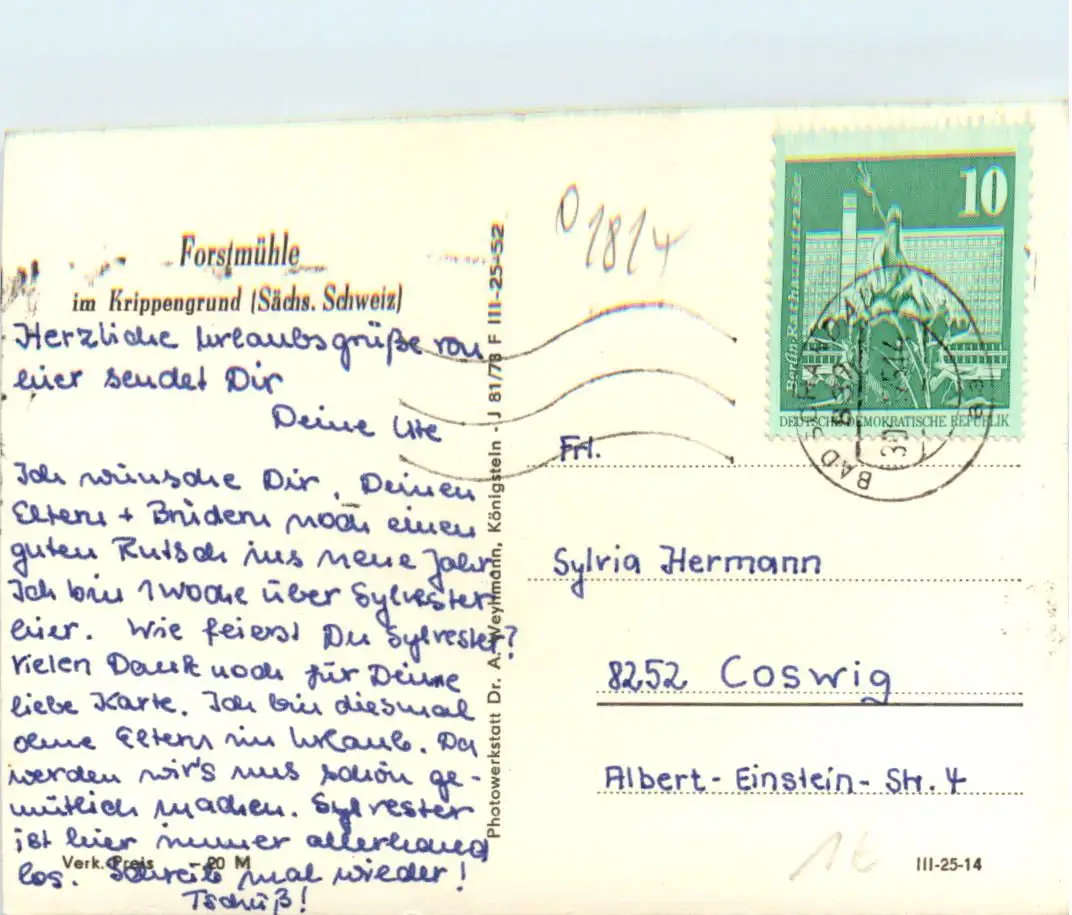 Forstmühle
im Krippengrund (Sächs. Schweiz)
Herzliche Urlaubsgrüße von
hier sendet Dir
Deine Ute
Ich wünsche Dir, Deinen
Eltern + Brüdern noch einen
guten Rutsch ins neue Jahr
Ich bin 1 Woche über Sylvester
hier. Wie feierst Du Sylvester?
Vielen Dank noch für Deine
liebe Karte. Ich bin diesmal
ohne Eltern im Urlaub. Da
werden wir's uns schön ge-
mütlich machen. Sylvester
ist hier immer allerhand
los. Schreib mal wieder!
Tschüß!
Verk. Preis -20 M
Photowerkstatt Dr. A. Weyhmann, Königstein - J 81/78 F III-25-52
01814
10
Berlin, Rathausstrasse
DEUTSCHE DEMOKRATISCHE REPUBLIK
BAD SCHANDAU
Frl.
Sylvia Hermann
8252 Coswig
Albert-Einstein-Str. 4
1€
III-25-14